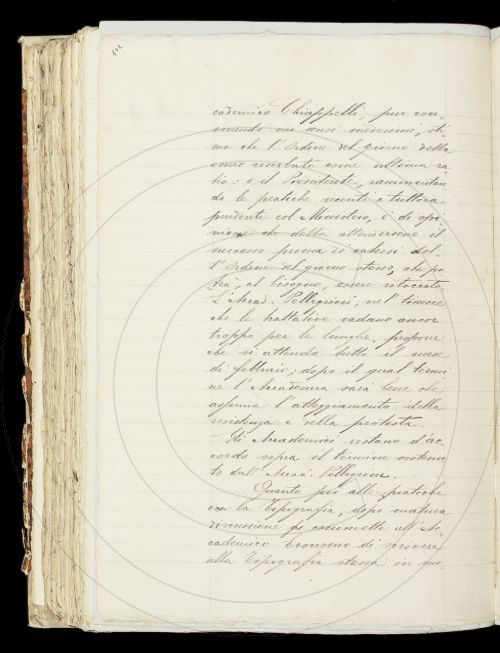 cademico Chiappelli, pur con-
venendo nei sensi medesimi, sti-
ma che l'Ordine del giorno debba
esser riserbato come ultima ra-
tio: e il Presidente, rammentan-
do le pratiche recenti e tuttora
pendenti col Ministero, è di opi-
nione che debba attendersene il
successo prima di valersi del-
l'Ordine del giorno stesso, che po-
trà, al bisogno, essere ritoccato.
L'Accad. Pellegrini, nel timore
che le trattative vadano ancor
troppo per le lunghe, propone
che si attenda tutto il mese
di febbraio; dopo il qual termi
ne l'Accademia sarà bene che
assuma l'atteggiamento della
resistenza e della protesta.
Gli Accademici restano d'ac-
cordo sopra il termine sostenu-
to dall'Accad. Pellegrini.
Quanto poi alle pratiche
con la Tipografia, dopo matura
discussione si commette all'Ac-
cademico Economo di scrivere
alla Tipografia stessa in